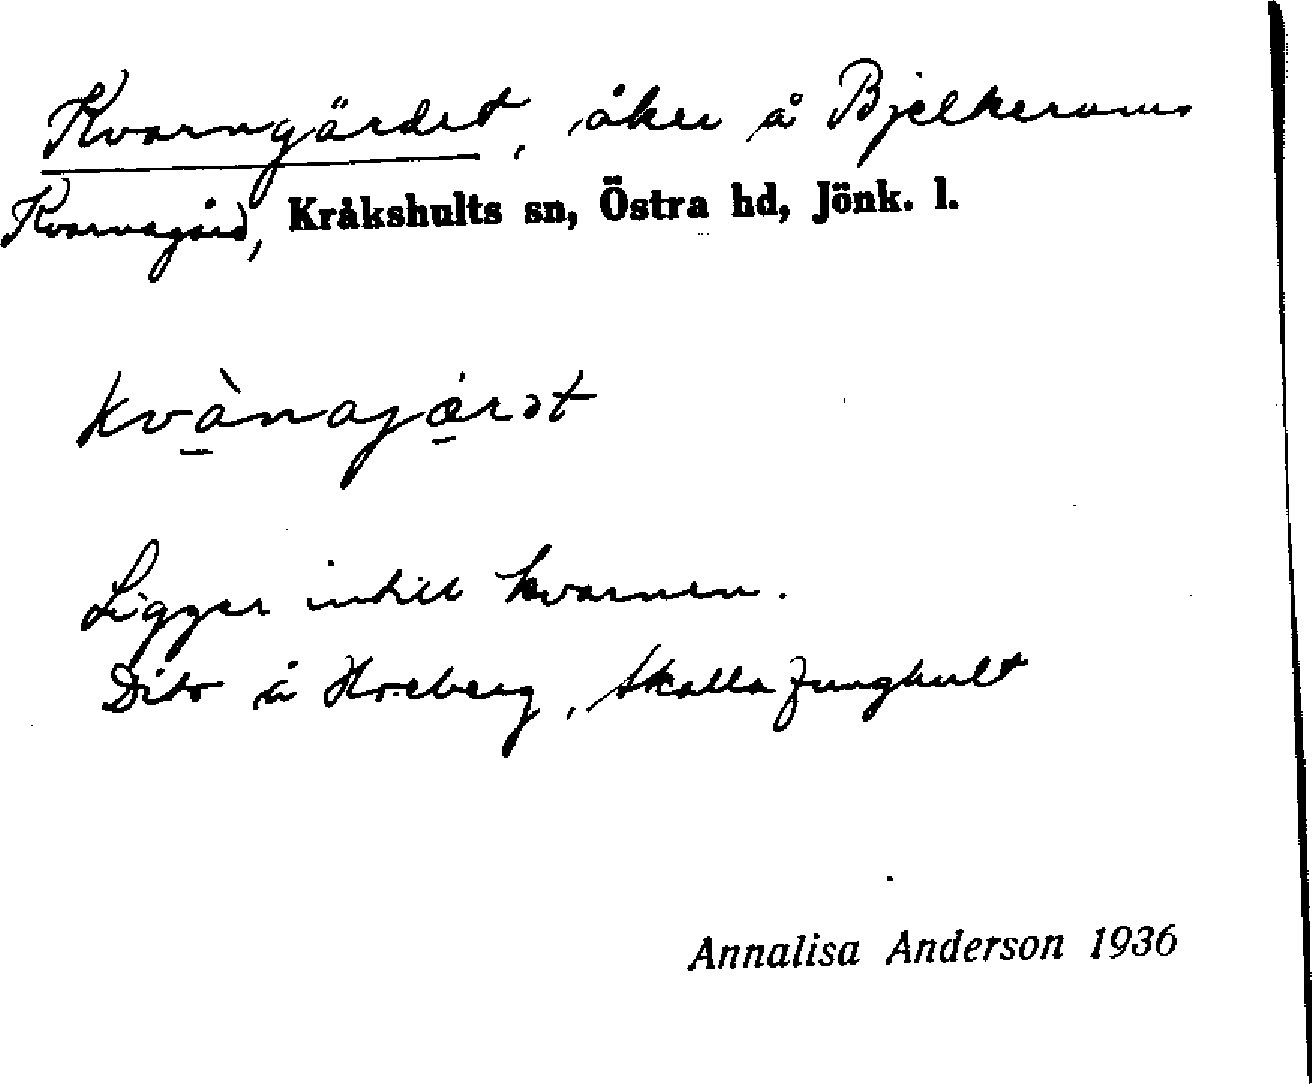 Kvarngärdet, åker å Bjelkerums
Kvarnagård, Kråkshults sn, Östra hd, Jönk. l.
kvànajǽrət
Ligger intill kvarnen.
Dito å Horeberg, Skälla Junghult
Annalisa Anderson 1936